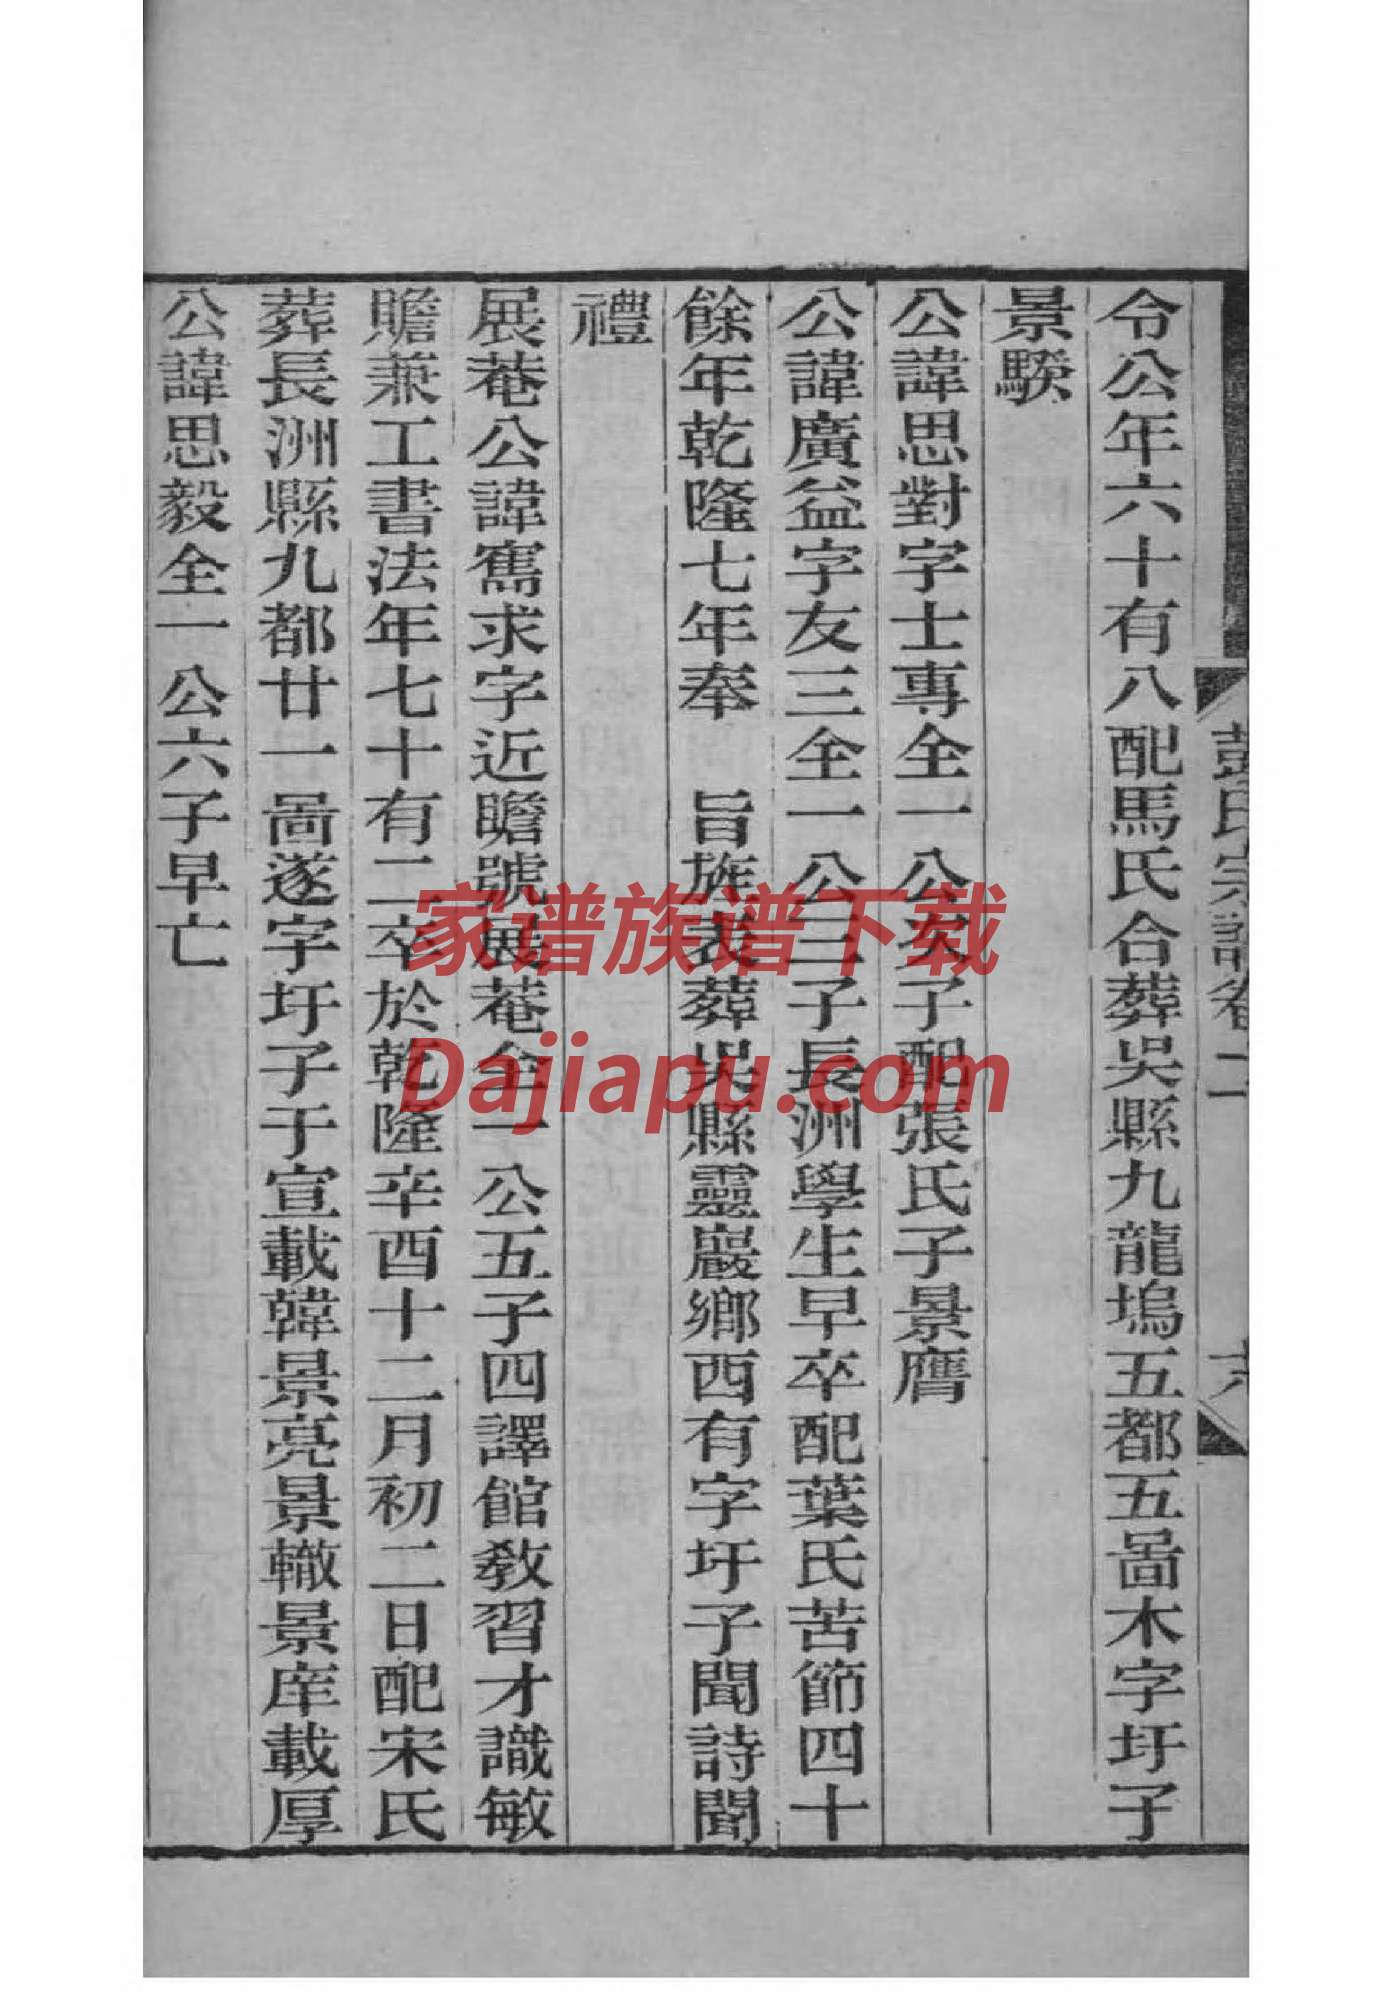 彭氏宗譜卷二
六
令公年六十有八配馬氏合葬吳縣九龍塢五都五啚木字圩子
景騤
公諱思對字士專仝一公次子配張氏子景膺
公諱廣益字友三仝一公三子長洲學生早卒配葉氏苦節四十
餘年乾隆七年奉　旨旌表葬吳縣靈巖鄉西有字圩子聞詩聞
禮
展菴公諱寯求字近瞻號展菴仝一公五子四譯館教習才識敏
贍兼工書法年七十有二卒於乾隆辛酉十二月初二日配宋氏
葬長洲縣九都廿一啚遂字圩子于宣載韓景亮景轍景庠載厚
公諱思毅仝一公六子早亡
家谱族谱下载
Dajiapu.com